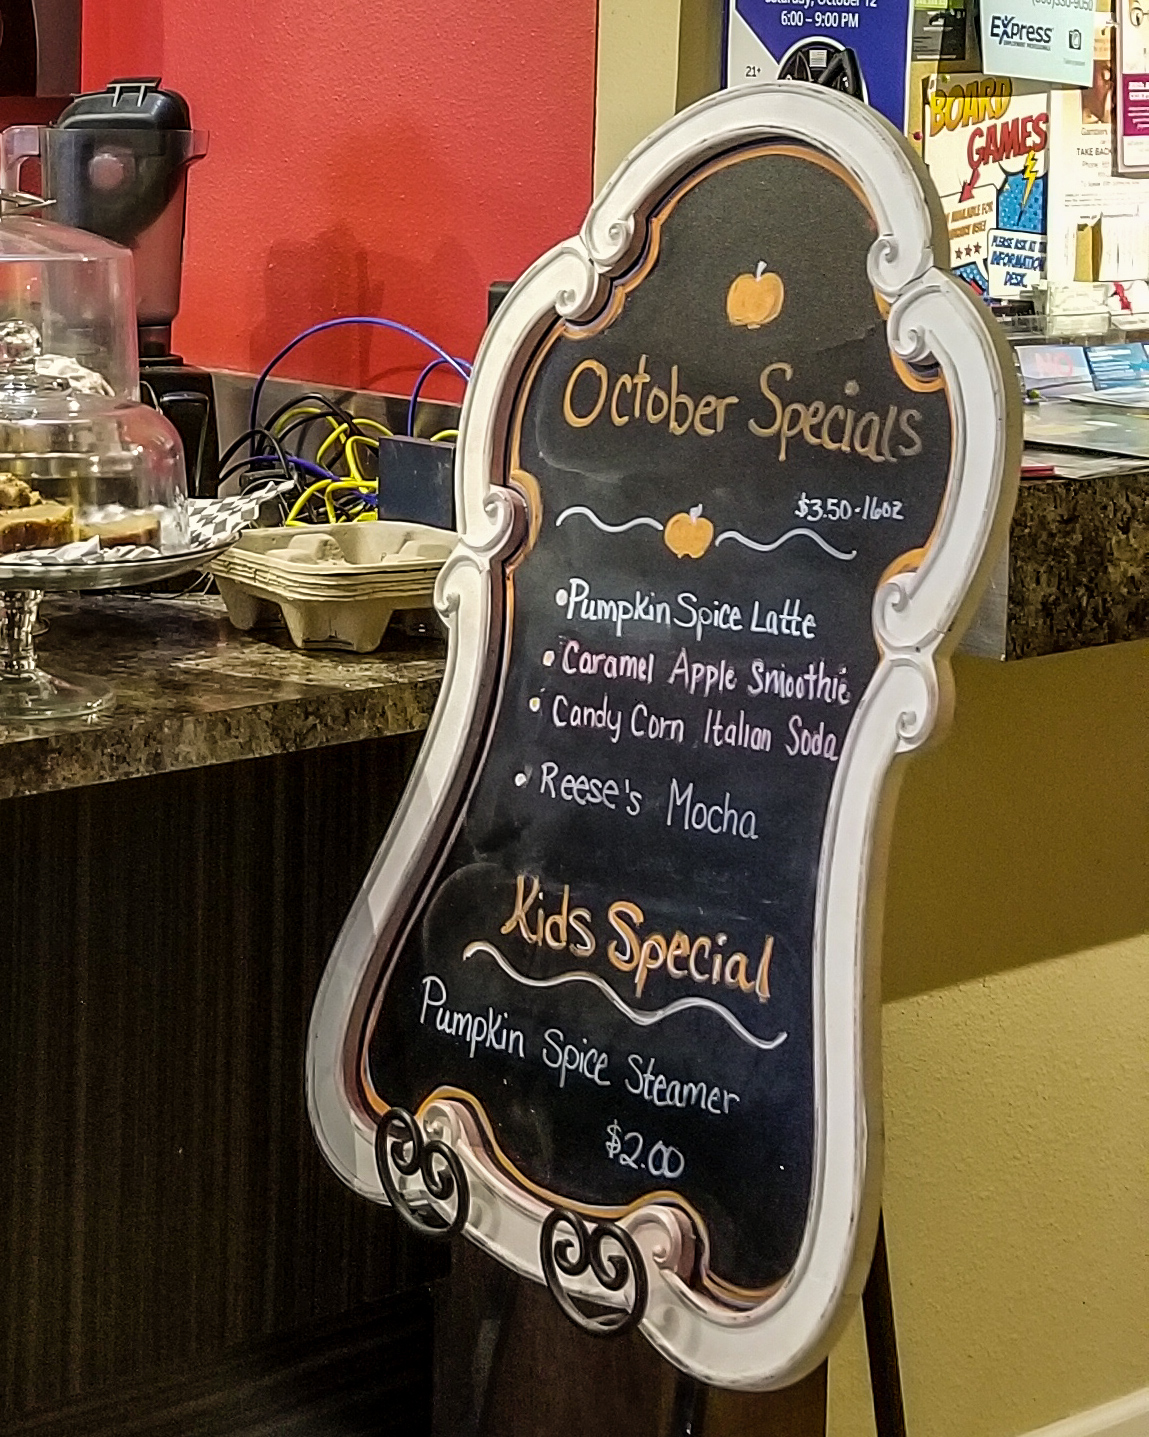 Saturday, October 12
6:00 – 9:00 PM
21+
Express
EMPLOYMENT PROFESSIONALS
BOARD
GAMES
AVAILABLE FOR
PLEASE ASK AT THE
INFORMATION
DESK.
TAKE BACK
October Specials
$3.50-16oz
•Pumpkin Spice Latte
• Caramel Apple Smoothie
• Candy Corn Italian Soda
• Reese's Mocha
Kids Special
Pumpkin Spice Steamer
$2.00